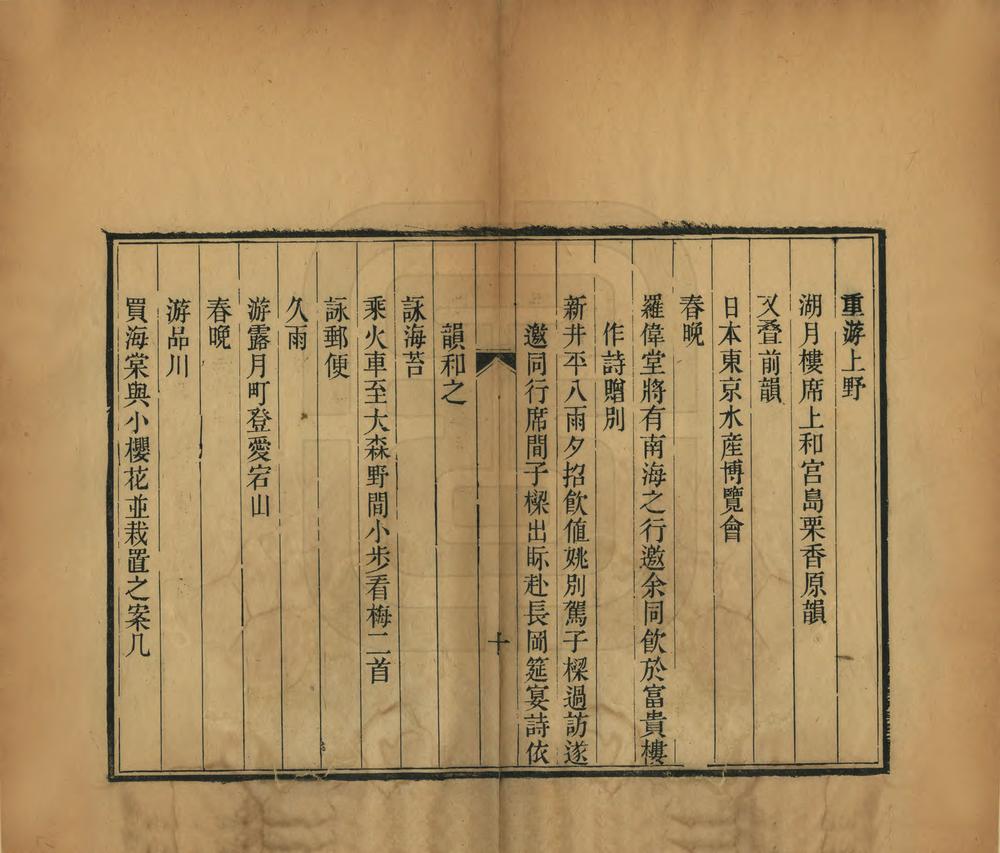 重游上野
湖月樓席上和宮島栗香原韻
又叠前韻
日本東京水產博覽會
春晚
羅偉堂將有南海之行邀余同飲於富貴樓
作詩贈別
新井平八雨夕招飲値姚別駕子樑過訪遂
邀同行席間子樑出际赴長岡筵宴詩依
十
韻和之
詠海苔
乘火車至大森野間小步看梅二首
詠郵便
久雨
游露月町登愛宕山
春晚
游品川
買海棠與小櫻花並栽置之案几